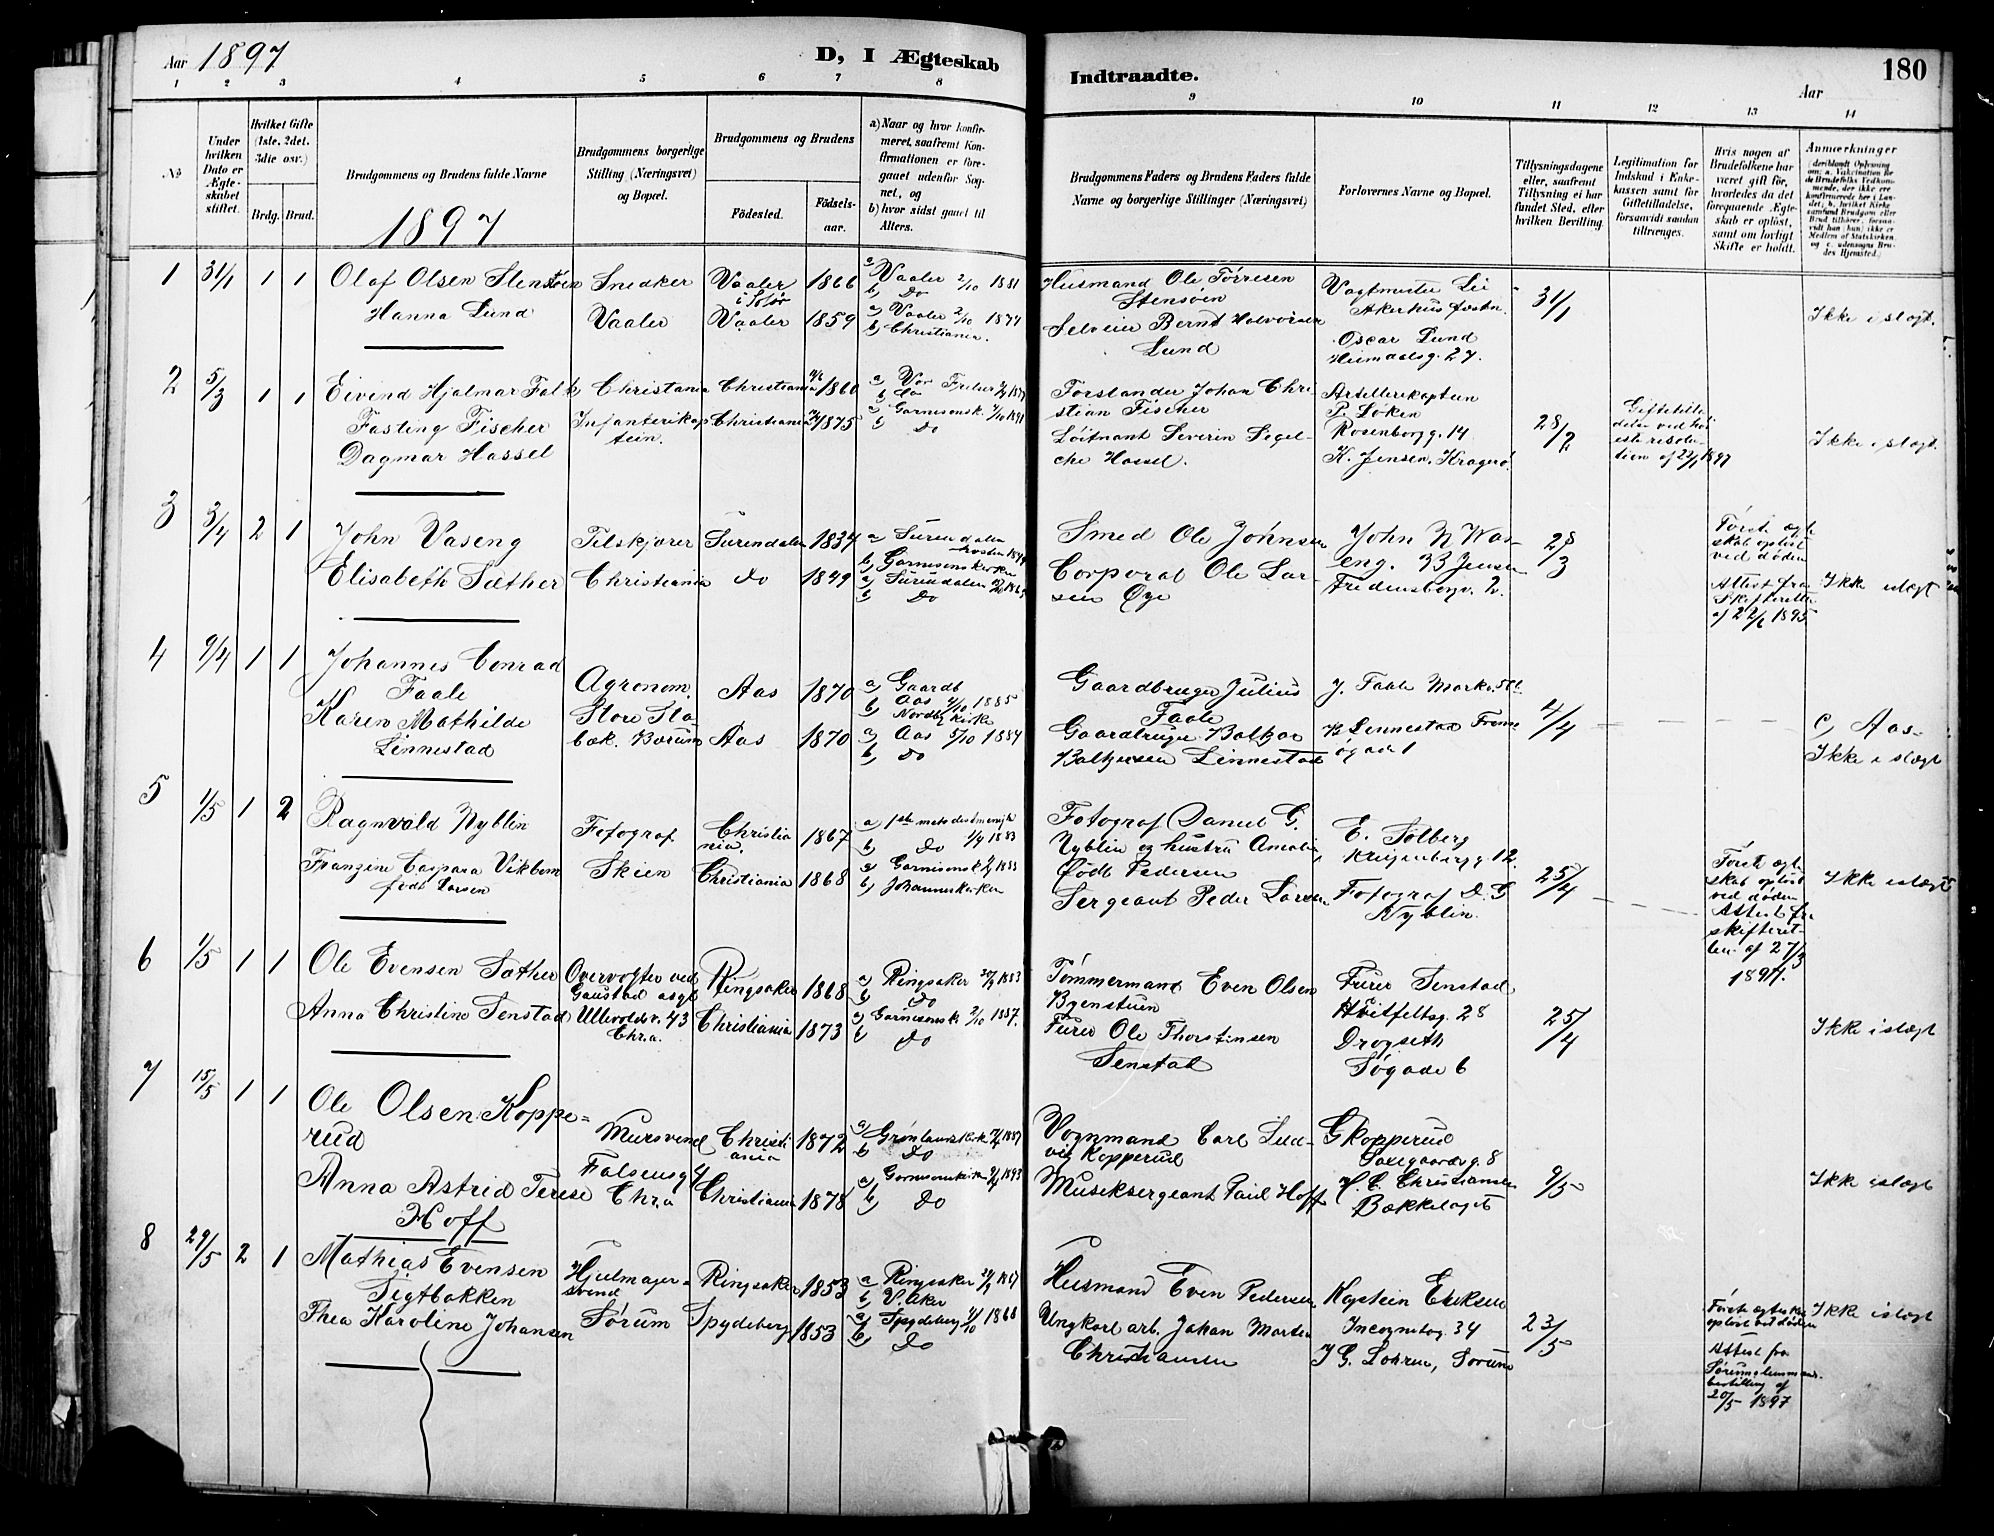 Aar 1897
D, I Ægteskab
Indtraadte.
180
Aar
1 2 3 4 5 6 7 8
9 10 11 12 13 14
№
Under hvilken Dato er Ægteskabet stiftet.
Hvilket Gifte (1ste, 2det, 3die osv.)
Brdg. Brud.
Brudgommens og Brudens fulde Navne
1897
Brudgommens borgerlige Stilling (Næringsvei) og Bopæl.
Brudgommens og Brudens
Fødested.
Fødselsaar.
a) Naar og hvor konfirmeret, saafremt Konfirmationen er foregaaet udenfor Sognet, og
b) hvor sidst gaaet til Alters.
Brudgommens Faders og Brudens Faders fulde Navne og borgerlige Stillinger (Næringsvei)
Forlovernes Navne og Bopæl.
Tillysningsdagene eller, saafremt Tillysning ei har fundet Sted, efter hvilken Bevilling.
Legitimation for Indskud i Enkekassen samt for Giftetilladelse, forsaavidt saadan tiltrænges.
Hvis nogen af Brudefolkene har været gift før, hvorledes da det foregaaende Ægteskab er opløst, samt om lovligt Skifte er holdt.
Anmærkninger
1 31/1 1 1 Olaf Olsen Stensøen Snedker Vaaler i Solør 1866 a) Vaaler 2/10 1881 b) Do
Hanna Lund Vaaler Vaaler 1859 a) Vaaler 2/10 1874 b) Christiania.
Husmand Ole Tørresen Stensøen
Selveier Bernt Halvorsen Lund
Vagtmester Lie Akerhus fæstn.
Oscar Lund Heimdalsg. 27.
31/1
Ikke i slægt.
2 5/3 1 1 Eivind Hjalmar Falk Fasting Fischer Christania Christiania 1860 a) Vor Frelser b) Do
Dagmar Hassel Infanterikaptein. Christiania 1875 a) Garnisonsk. b) Do
Forstander Johan Christian Fischer
Løitnant Severin Segelcke Hassel.
Artillerikaptein P. Løken Rosenborgg. 14
K. Jensen. Kragerø
28/2
Giftetilladelse ved høieste resolution af 22/1 1897
Ikke i slægt.
3 3/4 2 1 John Vaseng Tilskjærer Surendalen 1834 a Surendalen høsten b) Garnisonskirke
Elisabeth Sæther Christiania do 1849 a) Surendalen 1865 b) Do
Smed Ole Johnsen
Corporal Ole Larsen Øye
John N Waseng. B Jensen Fredensborgv. 2.
28/3
Første ægteskab opløst ved døden
Attest fra Skifteretten af 22/6 1895
Ikke i slægt
4 9/4 1 1 Johannes Conrad Faale Agronom. Aas 1870 a) Gaardb b) Aas 4/10 1885 Nordby kirke
Karen Mathilde Linnestad Store Stabæk. Bærum Aas 1870 a) Aas 5/10 1884 b) Do
Gaardbruger Julius Faale
Gaardbruger Balthzar Balthzersen Linnestad
J. Faale
Linnestad
4/4
c, Aas-
Ikke i slægt
5 1/5 1 2 Ragnvald Nyblin Fotograf Christiania. 1867 a 1ste metodistmenigh 1/4 1883 b) Do
Franzine Caspara Vikbom født Larsen Skien Christiania 1868 a) Garnisonsk b) Johanneskirken
Fotograf Daniel G. Nyblin og hustru Amalie Født Pedersen
Sergeant Peder Larsen
E. Solberg 12.
Fotograf D. G Nyblin.
25/4
Første ægteskab opløst ved døden Attest fra skifteretten af 27/3 1897.
Ikke i slægt
6 1/5 1 1 Ole Evensen Sæther Overvogter ved Gaustad asyl Ringsaker 1868 a) Ringsaker 1883 b) Do
Anna Christine Senstad Ullevoldsv. 43 Chr.a. Christiania 1873 a) Garnisonsk 2/10 1887. b) Do
Tømmermand Even Olsen
Furer Ole Thorstensen Senstad
Furer Senstad Hvitfeltsg. 28
Drogseth Søgade 6
25/4
Ikke i slægt
7 15/5 1 1 Ole Olsen Kopperud Mursvend Christiania 1872 a) Grønlandskirk b Do
Anna Astrid Terese Hoff Falsensg 4 Chr.a Christiania 1878 a) Garnisonskirken 1893 b) Do
Vognmand Carl Ludvig Kopperud
Musiksergeant Paul Hoff
G Kopperud
H. C. Christiansen Bækkelaget
9/5
Ikke i slægt
8 29/5 2 1 Mathias Evensen Sigtbakken Hjulmagersvend Ringsaker 1853 a Ringsaker 1867 b) V. Aker
Thea Karoline Johansen Sørum Spydeberg 1853 a) Spydeberg 1/10 1868 b) Do
Husmand Even Pedersen
Ungkarl arb. Johan Martin Christiansen
Kaptein Eriksen Incognitog. 34
J G. Lohren, Sørum
23/5
Første ægteskab opløst ved døden
Attest fra Sørum lensmandsbestilling af 20/5 1897
Ikke i slægt